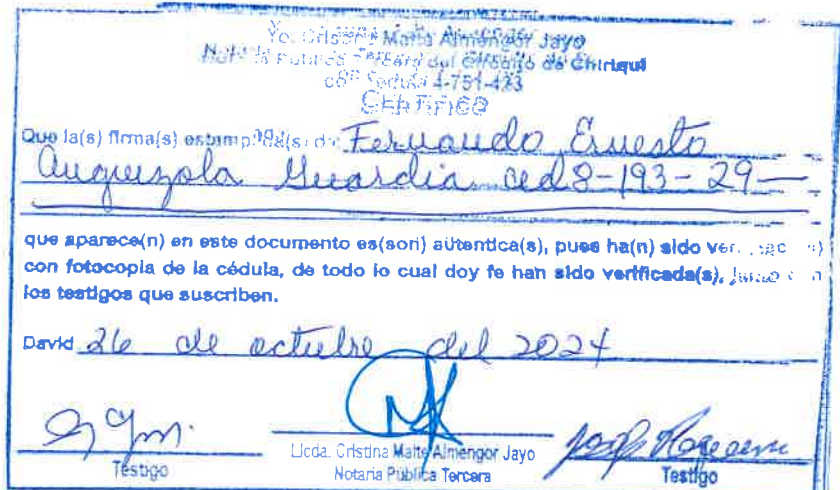 Yo, Cristina Maite Almengor Jayo
Notaria Pública Tercera del Circuito de Chiriquí
con Cédula 4-751-423
CERTIFICO
Que la(s) firma(s) estampada(s) de Fernando Ernesto
Anguizola Guardia ced 8-193-29
que aparece(n) en este documento es(son) autentica(s), pues ha(n) sido
con fotocopia de la cédula, de todo lo cual doy fe han sido verificada(s),
los testigos que suscriben.
David 26 de octubre del 2024
Testigo
Licda. Cristina Maite Almengor Jayo
Notaria Pública Tercera
Testigo